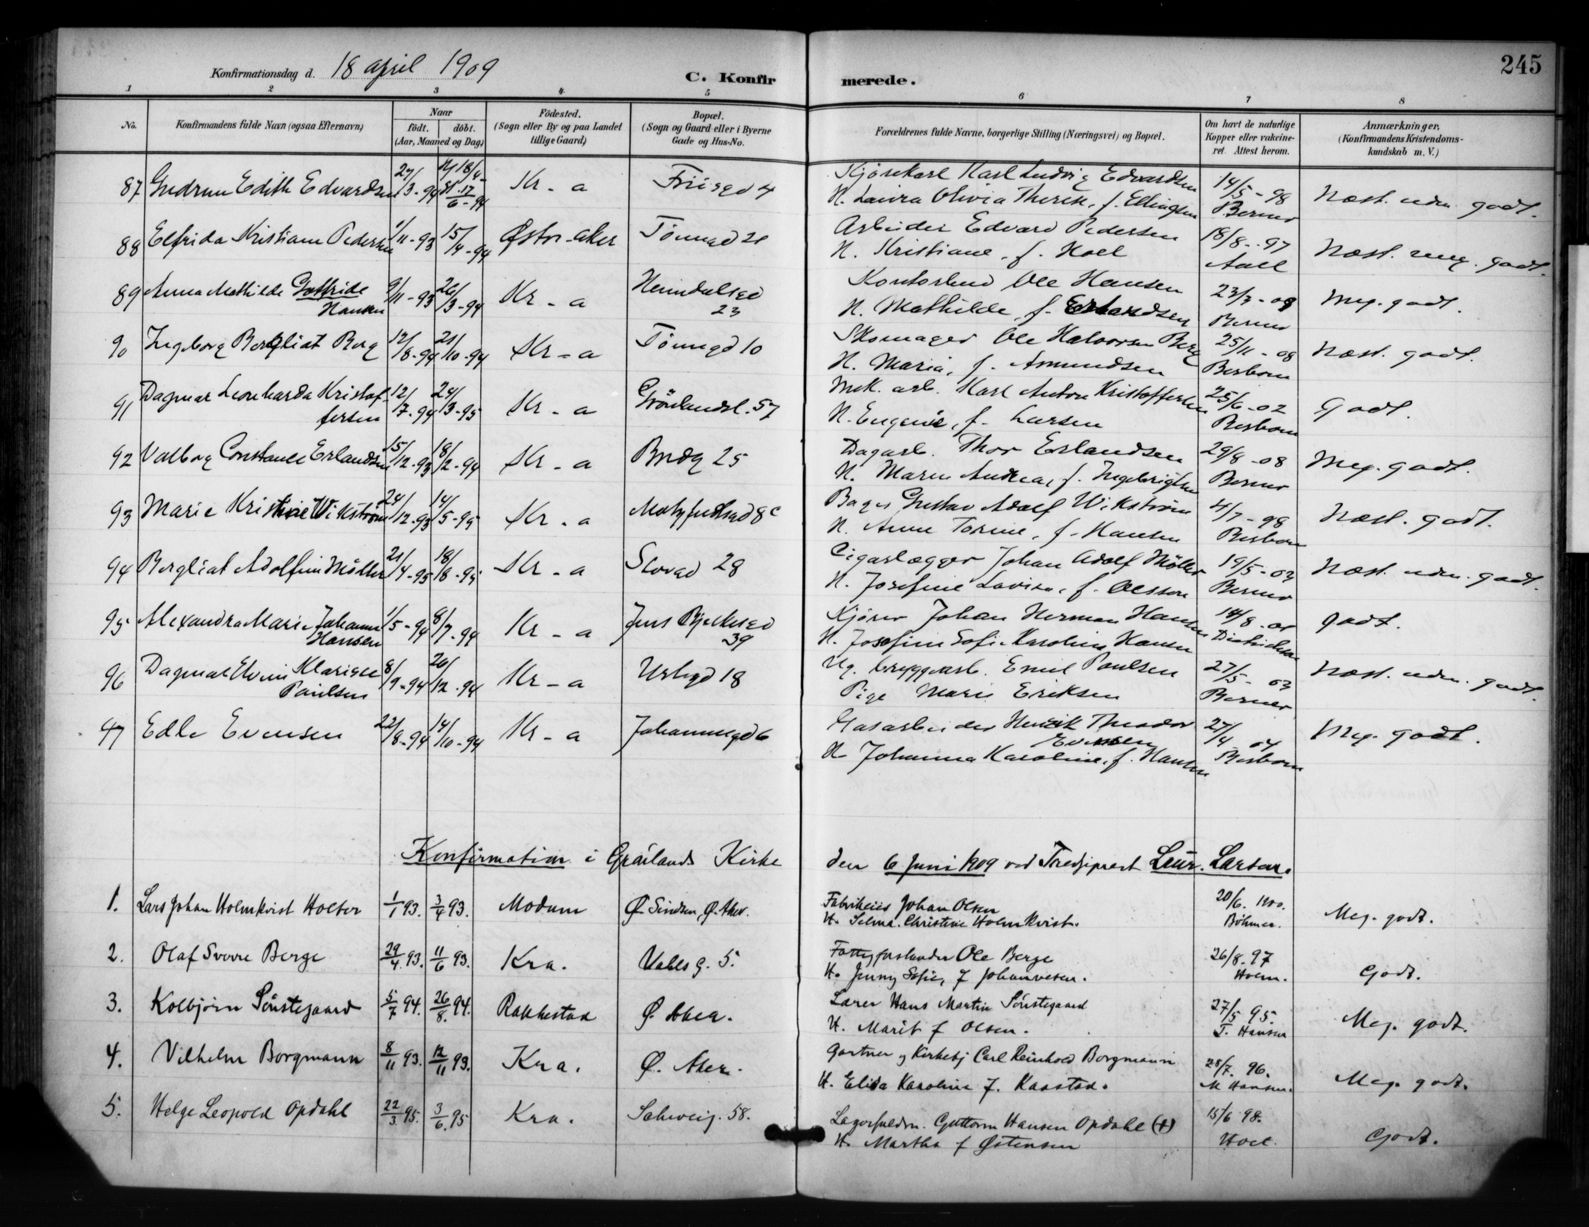 245
Konfirmationsdag d. 18 april 1909 C. Konfirmerede.
1 2 3 4 5 6 7 8
No. Konfirmandens fulde Navn (ogsaa Efternavn) Naar født. døbt. (Aar, Maaned og Dag) Fødested. (Sogn eller By og paa Landet tillige Gaard) Bopæl. (Sogn og Gaard eller i Byerne Gade og Hus-No. Forældrenes fulde Navne, borgerlige Stilling (Næringsvei) og Bopæl. Om havt de naturlige Kopper eller vaccineret. Attest herom. Anmærkninger. (Konfirmandens Kristendomskundskab m. V.)
87 Gudrun Edith Edvardsen 27/3-94 17/6-94 Kr-a Friisgd 4 Kjørekarl Karl Ludvig Edvardsen 14/5-98 Næst. udm. godt.
H. Laura Olivia Therese, f. Ellingsen Berner
88 Elfrida Kristiane Pedersen 1/11-93 15/4-94 Østr. Aker Tøiengd 21 Arbeider Edvard Pedersen 18/8-97 Næst. meg. godt.
H. Kristiane, f. Hoel Aall
89 Anna Mathilde Hansen 9/11-93 26/3-94 Kr-a Heimdalsgd 23 Kontorbud Ole Hansen 23/3-08 Meg. godt.
H. Mathilde, f. Erlandsen Berner
90 Ingeborg Bergliot Berg 12/8-94 21/10-94 Kr-a Tøiengd 10 Skomager Ole Halvorsen Berg 25/11-08 Næst. godt.
H. Maria, f. Amundsen Besbom
91 Dagmar Leonharda Kristoffersen 12/7-94 24/3-95 Kr-a Grønlandsl. 57 Mek. arb. Karl Anton Kristoffersen 25/6-02 Godt.
H. Eugenie, f. Larsen Besbom
92 Valborg Constance Erlandsen 15/12-93 18/2-94 Kr-a Brudg 25 Dagarb. Thor Erlandsen 29/8-08 Meg. godt.
H. Maren Andrea, f. Ingebrigtsen Berner
93 Marie Kristine Wikstrøm 24/12-93 14/5-95 Kr-a 8c Bager Gustav Adolf Wikstrøm 4/7-98 Næst. godt.
H. Anne Torine, f. Hansen Besbom
94 Bergliot Adolfine Møller 21/4-95 18/8-95 Kr-a 28 Cigarlægger Johan Adolf Møller 19/5-03 Næst. udm. godt.
H. Josefine Lovise, f. Olsson Berner
95 Alexandra Marie Johanne Hansen 1/5-94 8/7-94 Kr-a Jens Bjelkesgd 39 Kjører Johan Herman Hansen 14/8-01 godt.
H. Josefine Sofie Karoline Hansen
96 Dagmar Elvine Klarise Paulsen 8/9-94 26/12-94 Kr-a Urtegd 18 Ug. bryggearb. Emil Paulsen 27/5-03 Næst. udm. godt.
Pige Marie Eriksen Berner
97 Edle Evensen 22/8-94 14/10-94 Kr-a Johannesgd 6 Gasarbeider Henrik Theodor Evensen 27/4 04 Meg. godt.
H. Johanna Karoline, f. Hansen Besbom
Konfirmation i Grønlands Kirke den 6 Juni 1909 ved Tredjeprest Laur. Larsen.
1. Lars Johan Holmkvist Holter 1/1 93. 3/4 93. Modum Ø. Sinsen, Ø. Aker. Fabrikeier Johan Olsen 20/6. 1900. Meg. godt.
H. Selma Christine Holmkvist. Böhmer.
2. Olaf Sverre Berge 29/4. 93. 11/6 93. Kra. Vahlsg. 5. Ole Berge 26/8. 97 Godt.
H. Jenny Sofie, f Johannesen. Holm.
3. Kolbjørn Sørstegaard 5/7 94. 26/8. 94. Rakkestad Ø. Aker. Lærer Hans Martin Sørstegaard 27/5 95. Meg. godt.
H. Marit f Olsen. T. Hansen
4. Vilhelm Borgmann 8/11 93. 12/11 93. Kra. Ø. Aker. Gartner og Kirketj Carl Reinhold Borgmann 28/7. 96. Meg. godt.
H. Elisa Karoline f. Kaastad. M Hansen.
5. Helge Leopold Opdahl 22/3 95. 3/6. 95 Kra. Schweig. 58. Guttorm Hansen Opdahl (+) 15/6 98. Godt.
H. Martha f Østensen Hoel